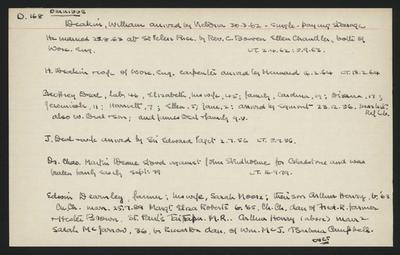 D. 168 OMNIBUS
Deakin, William arrived by Victoria 30.3.62 - single - paying steerage
He married 28.8.63 at St Peters Ricc. by Rev. C. Bowen Ellen Chandler, both of
Worc. Eng. LT. 2.4.62; 2.9.63.
H. Deakin & wife of Worc. Eng. carpenter arrived by 6.2.64 LT. 13.2.64
Geoffrey Deal, lab 46, Elizabeth, his wife, 45; family, Carolina, 19; Susanna, 17;
Jeremiah, 11; Harriett, 7; Ellen, 5; Jane, 2; arrived by Egmont 23.12.56.
also w. Deal & son; and James Deal & family q.v.
J. Deal & wife arrived by Sir Edward Paget 2.7.56 LT. 5.7.56.
Dr. Chas. Martin Deane stood against John Studholme for Gladstone and was
beaten fairly easily Sept. 79 LT.
Edwin Dearnley, farmer; his wife, Sarah Moore; their son Arthur Henry, b. '63
Ch.Ch. marr. 25.7.89 Margt Eliza Roberts b. '65, Ch.Ch. dau. of Fred. R. farmer
& Hester Brown. St. Paul's M.R. Arthur Henry (above) marr 2
Sarah McFarrow, 36, b. dau. of Wm. McF. & Barbara Campbell.
over